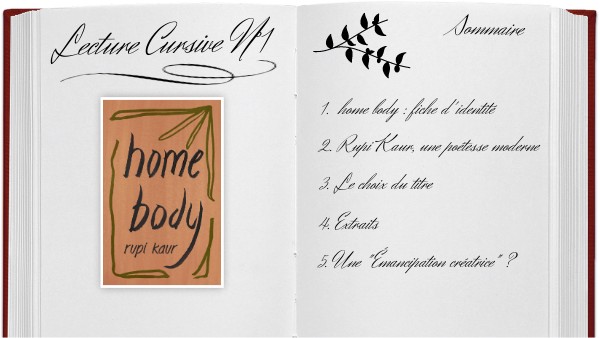 Lecture Cursive N°1
home
body
rupi kaur
Sommaire
1. home body : fiche d'identité
2. Rupi Kaur, une poétesse moderne
3. Le choix du titre
4. Extraits
5. Une "Émancipation créatrice" ?